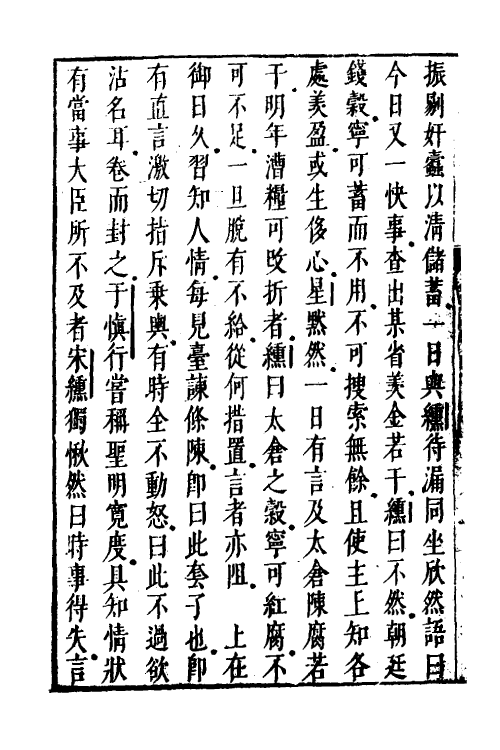 振刷奸蠹以清儲蓄一日與纁待漏同坐欣然語曰
今日又一快事查出某省羡金若干纁曰不然朝廷
錢穀寧可蓄而不用不可搜索無餘且使主上知各
處羡盈或生侈心星默然一日有言及太倉陳腐若
于明年漕糧可改折者纁曰太倉之穀寧可紅腐不
可不足一旦脫有不給從何措置言者亦阻　上在
御日久習知人情每見臺諫條陳卽曰此套子也卽
有直言激切指斥乘輿有時全不動怒曰此不過欲
沽名耳卷而封之于慎行嘗稱聖明寬度具知情狀
有當事大臣所不及者宋纁獨愀然曰時事得失言